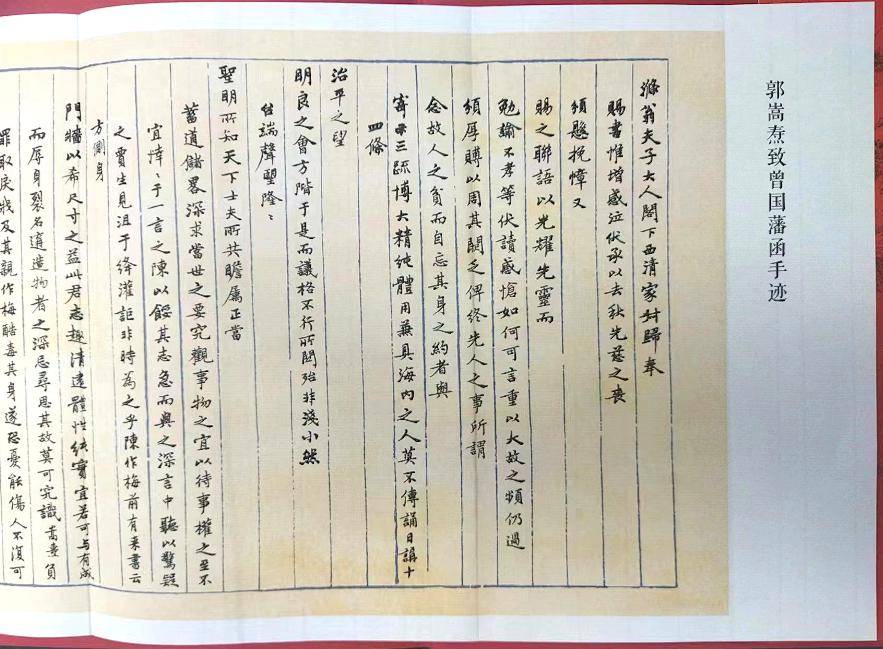 郭嵩焘致曾国藩函手迹
滌翁夫子大人閣下西清家封歸奉
賜書惟增感泣伏承以去秋先慈之喪
頒懸挽幛又
賜之聯語以光耀先靈而
勉諭不孝等伏讀感愴如何可言重以大故之頻仍過
頒厚賻以周其闕乏俾終先人之事所謂
念故人之貧而自忘其身之約者與
寄示三疏博大精純體用兼具海内之人莫不傳誦日講十
四條
治平之望
明良之會方階于是而議格不行所關殆非淺小然
台端聲聞隆隆
聖明所知天下士夫所共瞻屬正當
蓄道儲畧深求當世之要究觀事物之宜以待事權之至不
宜悻悻于一言之陳以餒其志急而與之深言中聽以驚疑
之賈生見沮于絳灌詎非時為之乎陳作梅前有來書云
方側身
門牆以希尺寸之益此君志趣清遠體性純實宜若可与有成
而辱身裂名適造物者之深忌尋思其故莫可究識嵩燾負
罪取戾戕及其親作梅酷毒其身遂恐憂能傷人不復可